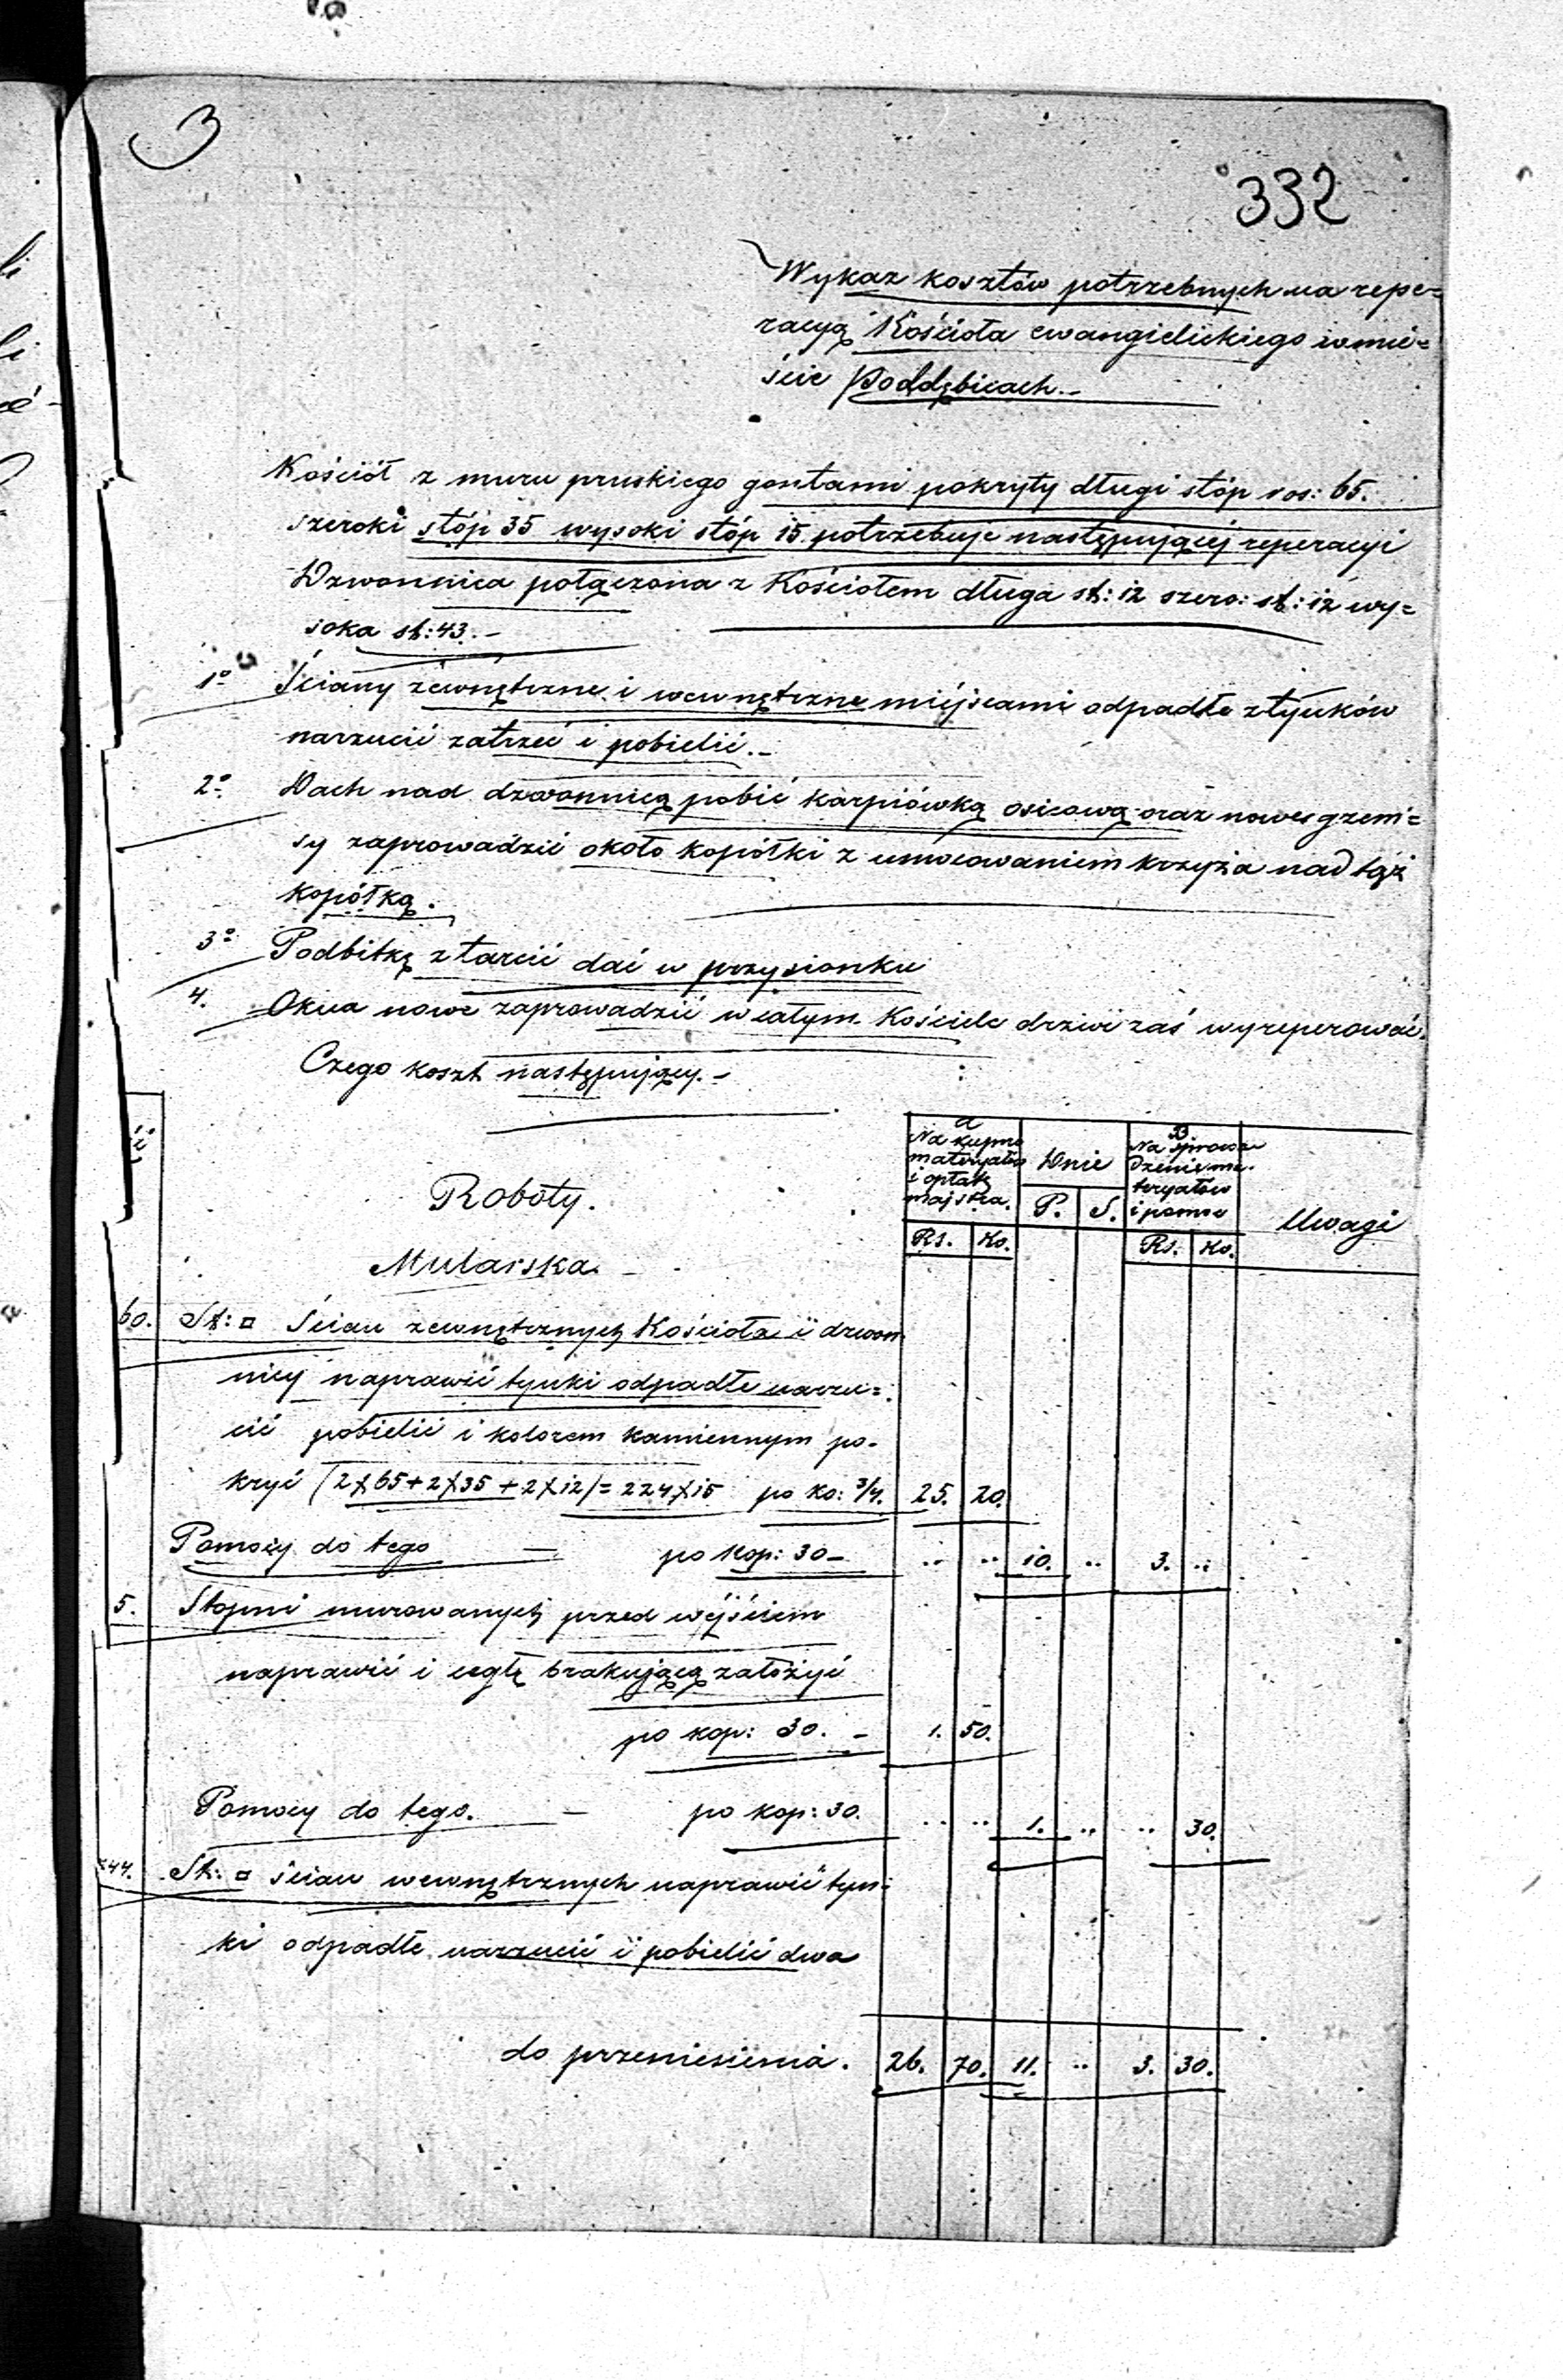 3
332
Wykaz kosztów potrzebnych na repe=
racyą Kościoła ewangielickiego w mie=
ście Poddębicach.-
Kościół z muru pruskiego gontami pokryty długi stóp ros: 65.
szeroki stóp 35 wysoki stóp 15 potrzebuje następującéj reperacyi
Dzwonnica połączona z Kościołem długa st: 12 szero: st: 12 wy=
soka st: 43.-
1º Ściany zewnętrzne i wewnętrzne miéjscami odpadłe z tynków
narzucić zatrzeć i pobielić.-
2º Dach nad dzwonnicą pobić karpiówką osicową oraz nowe gzem=
sy zaprowadzić około kopółki z umocowaniem krzyża nad tąż
kopółką.
3º Podbitkę z tarcic dać w przysionku
4. Okna nowe zaprowadzić w całym Kościele drzwi zaś wyreperować.
Czego koszt następujący.-
a
Na kupno
materyałów
i opłatę
majstra.
Dnie
B.
Na sprowa
dzenie ma.
teryałów
i pomoc
Uwagi
P. S.
Rs. Ko. Rs. Ko.
Roboty.
Mularska.
60. St: □ Ścian zewnętrznych Kościoła i dzwon
nicy naprawić tynki odpadłe narzu=
cić pobielić i kolorem kamiennym po-
kryć (2×65+2×35+2×12)=224×15 po ko: 3/4. 25. 20.
Pomocy do tego — po kop: 30- .. .. 10. .. 3. ..
5. Stopni murowanych przed wejściem
naprawić i cegłę brakującą założyć
po kop: 30. - 1. 50.
Pomocy do tego. — po kop: 30. .. .. 1. .. .. 30.
44. St: □ ścian wewnętrznych naprawić tyn=
ki odpadłe narzucić i pobielić dwa
do przeniesienia. 26. 70. 11. .. 3. 30.